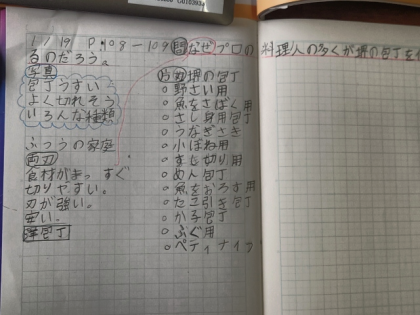 1/19 P.108-109 問なぜプロの料理人の多くが堺の包丁を使
るのだろう。
写真
包丁うすい
よく切れそう
いろんな種類
ふつうの家庭
両刃
食材がまっすぐ
切りやすい。
刃が強い。
安い。
洋包丁
片刃堺の包丁
○野さい用
○魚をさばく用
○さし身用包丁
○うなぎさき
○小ばね用
○すじ切り用
○めん包丁
○魚をおろす用
○たこ引き包丁
○か子包丁
○ふぐ用
○ペティナイフ